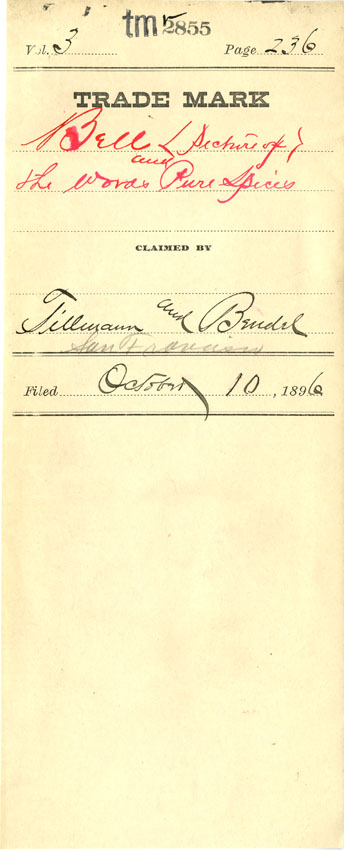 tm 2855
Vol. 3 Page 236
TRADE MARK
Bell (Picture of)
and
the words Pure Spices
CLAIMED BY
Tillmann and Bendel
San Francisco
Filed October 10, 1896